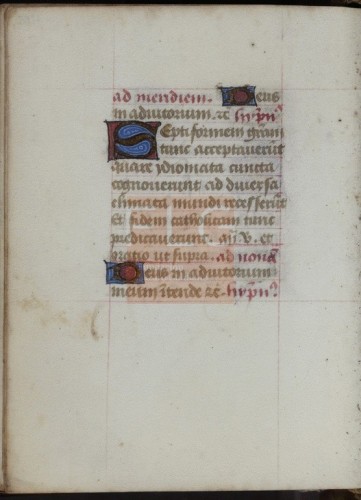 ad meridiem. Deus
in adiutorium. &c hỹpnꝰ
Septiformem gr̃am
tunc acceperũt
quare ydiomata cuncta
cognouerunt ad diuersa
climata mundi recesserũt
Et fidem catholicam tunc
predicauerunt. v. et
oratio ut supra. ad nonã
Deus in adiutorium
meum ĩtende &c. hỹpnꝰ